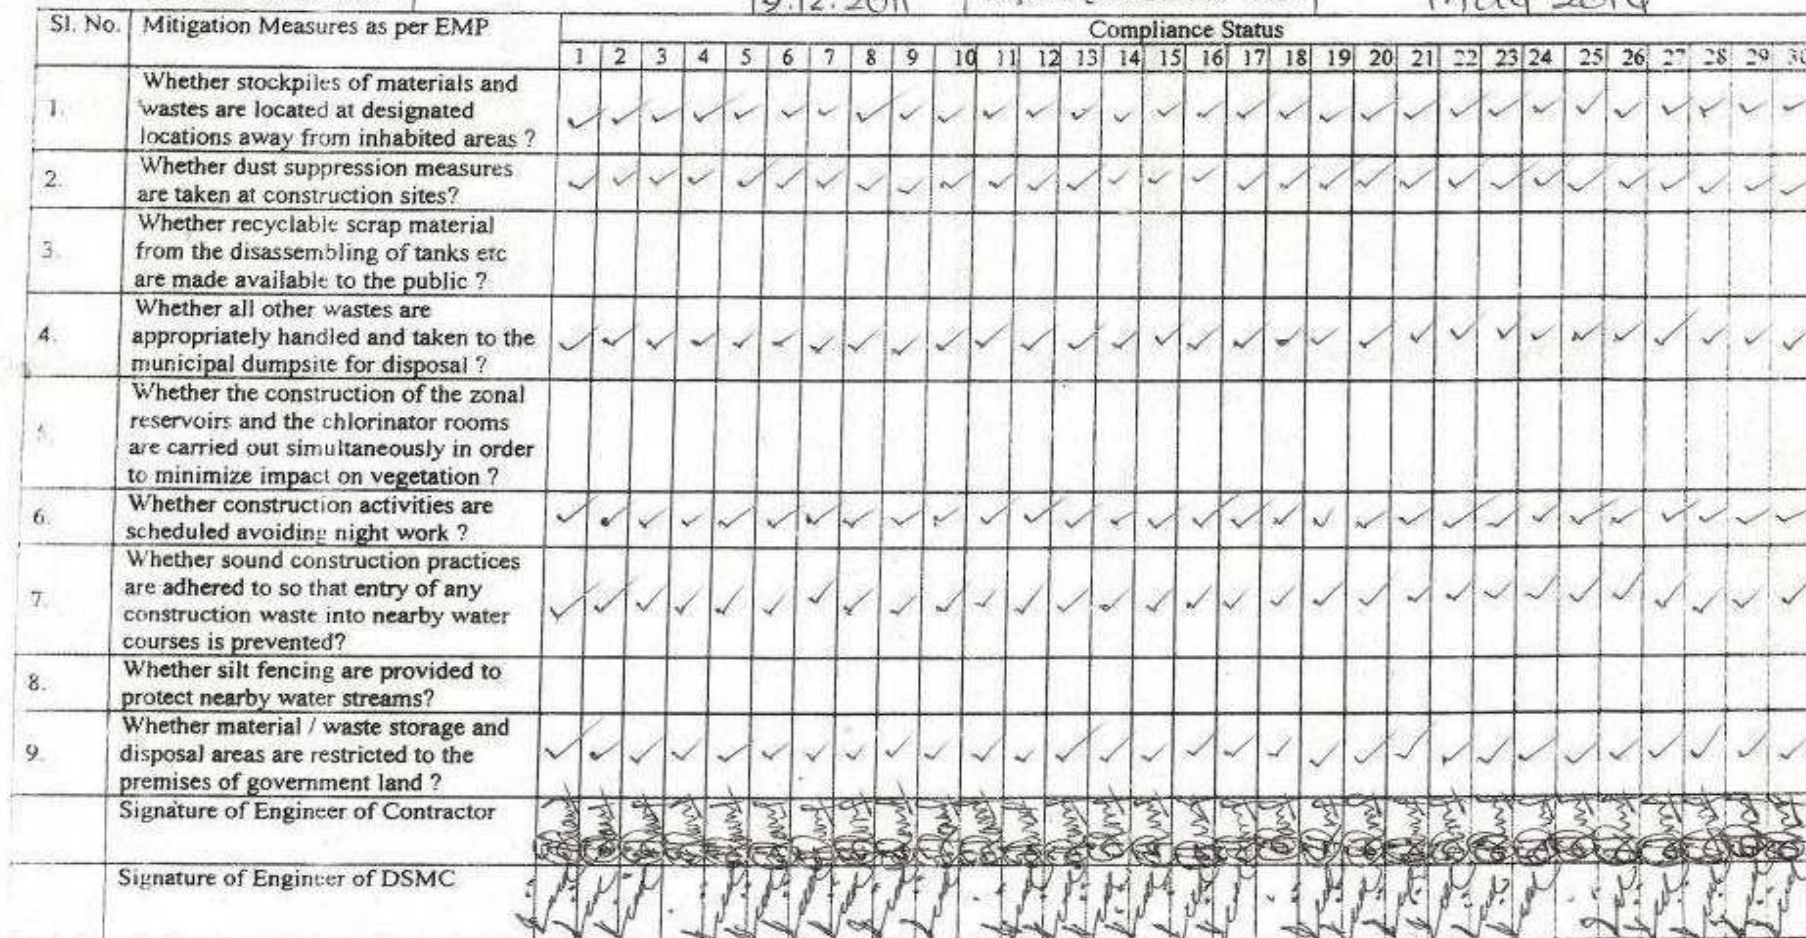 19.12.2011 May 2014
Sl. No. Mitigation Measures as per EMP Compliance Status
1 2 3 4 5 6 7 8 9 10 11 12 13 14 15 16 17 18 19 20 21 22 23 24 25 26 27 28 29 30
1. Whether stockpiles of materials and
wastes are located at designated
locations away from inhabited areas ?
✓ ✓ ✓ ✓ ✓ ✓ ✓ ✓ ✓ ✓ ✓ ✓ ✓ ✓ ✓ ✓ ✓ ✓ ✓ ✓ ✓ ✓ ✓ ✓ ✓ ✓ ✓ ✓ ✓ ✓
2. Whether dust suppression measures
are taken at construction sites?
✓ ✓ ✓ ✓ ✓ ✓ ✓ ✓ ✓ ✓ ✓ ✓ ✓ ✓ ✓ ✓ ✓ ✓ ✓ ✓ ✓ ✓ ✓ ✓ ✓ ✓ ✓ ✓ ✓ ✓
3. Whether recyclable scrap material
from the disassembling of tanks etc
are made available to the public ?
4. Whether all other wastes are
appropriately handled and taken to the
municipal dumpsite for disposal ?
✓ ✓ ✓ ✓ ✓ ✓ ✓ ✓ ✓ ✓ ✓ ✓ ✓ ✓ ✓ ✓ ✓ ✓ ✓ ✓ ✓ ✓ ✓ ✓ ✓ ✓ ✓ ✓ ✓ ✓
5. Whether the construction of the zonal
reservoirs and the chlorinator rooms
are carried out simultaneously in order
to minimize impact on vegetation ?
6. Whether construction activities are
scheduled avoiding night work ?
✓ ✓ ✓ ✓ ✓ ✓ ✓ ✓ ✓ ✓ ✓ ✓ ✓ ✓ ✓ ✓ ✓ ✓ ✓ ✓ ✓ ✓ ✓ ✓ ✓ ✓ ✓ ✓ ✓ ✓
7. Whether sound construction practices
are adhered to so that entry of any
construction waste into nearby water
courses is prevented?
✓ ✓ ✓ ✓ ✓ ✓ ✓ ✓ ✓ ✓ ✓ ✓ ✓ ✓ ✓ ✓ ✓ ✓ ✓ ✓ ✓ ✓ ✓ ✓ ✓ ✓ ✓ ✓ ✓ ✓
8. Whether silt fencing are provided to
protect nearby water streams?
9. Whether material / waste storage and
disposal areas are restricted to the
premises of government land ?
✓ ✓ ✓ ✓ ✓ ✓ ✓ ✓ ✓ ✓ ✓ ✓ ✓ ✓ ✓ ✓ ✓ ✓ ✓ ✓ ✓ ✓ ✓ ✓ ✓ ✓ ✓ ✓ ✓ ✓
Signature of Engineer of Contractor
Signature of Engineer of DSMC